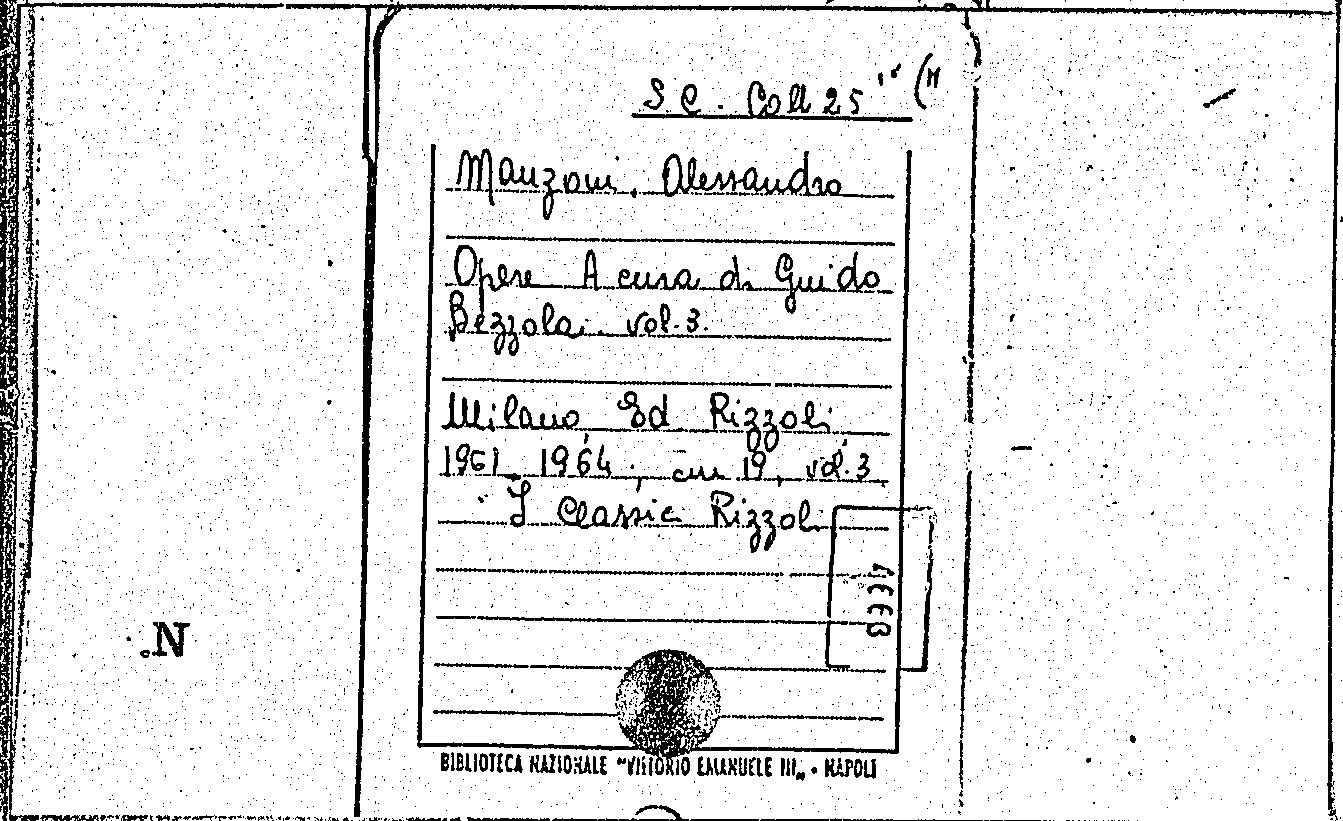 S C . Coll 25 "" (11
Manzoni. Alessandro
Opere A cura di Guido
Bezzola. vol. 3.
Milano Ed Rizzoli
1961 1964 ; cm 19, vol. 3
I Classici Rizzoli
N
BIBLIOTECA NAZIONALE "VITTORIO EMANUELE III„ • NAPOLI